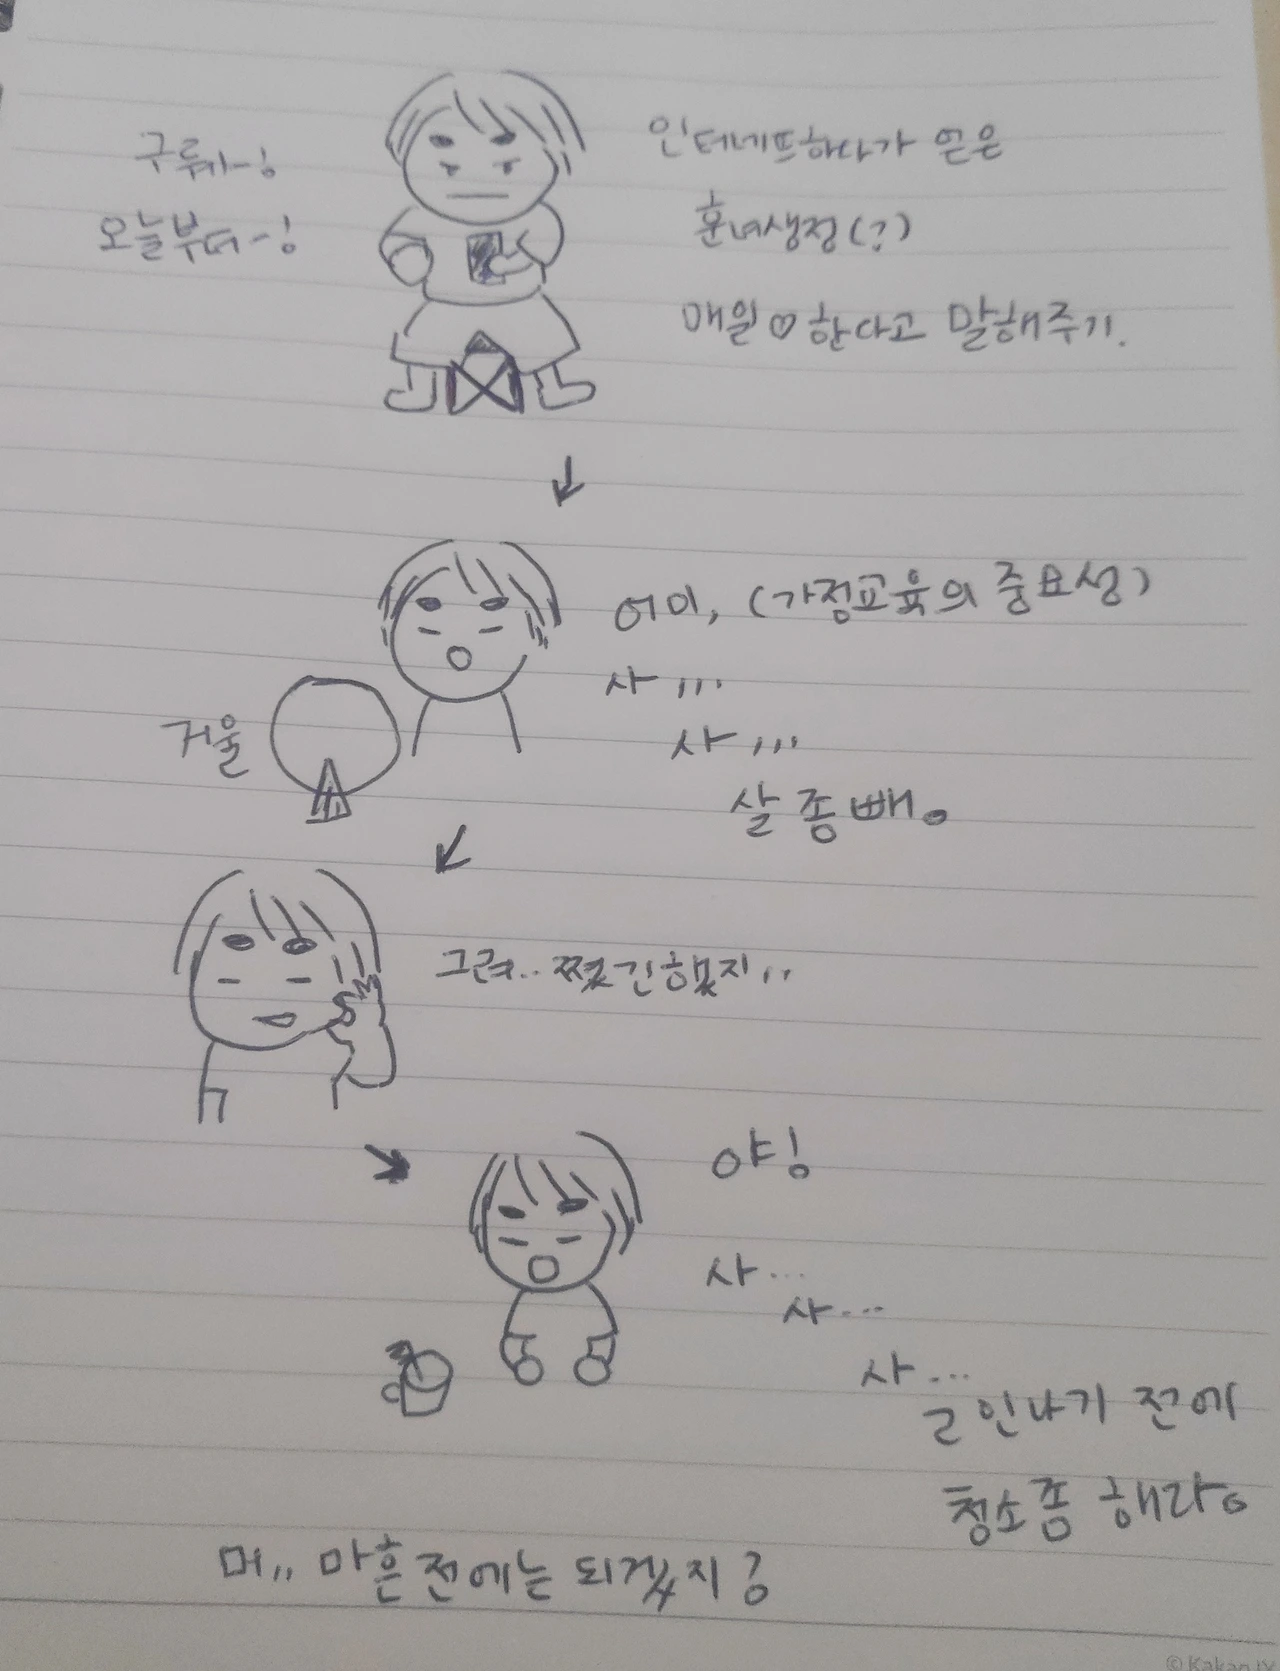 구뤠-!
오늘부터-!
인터네뜨하다가 얻은
훈녀생정(?)
매일♡한다고 말해주기.
어이, (가정교육의 중요성)
사,,,
사,,,
살 좀 빼。
거울
그려.. 쪘긴했지,,
야!
사...
사...
사...
ㄹ인나기 전에
청소좀 해라。
머,, 마흔 전에는 되겠지?
© Kakan.IY